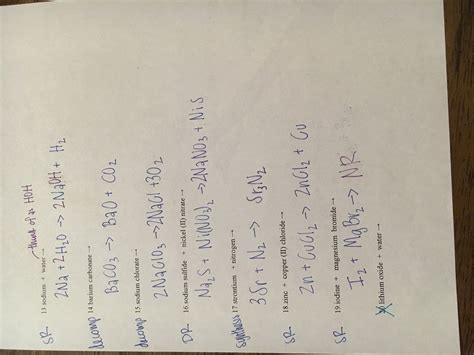 think of as HOH
SR 13 sodium + water →
2Na + 2H₂O → 2NaOH + H₂
decomp 14 barium carbonate →
BaCO₃ → BaO + CO₂
decomp 15 sodium chlorate →
2NaClO₃ → 2NaCl + 3O₂
DR 16 sodium sulfide + nickel (II) nitrate →
Na₂S + Ni(NO₃)₂ → 2NaNO₃ + NiS
Synthesis 17 strontium + nitrogen →
3Sr + N₂ → Sr₃N₂
SR 18 zinc + copper (II) chloride →
Zn + CuCl₂ → ZnCl₂ + Cu
SR 19 iodine + magnesium bromide →
I₂ + MgBr₂ → NR
lithium oxide + water →